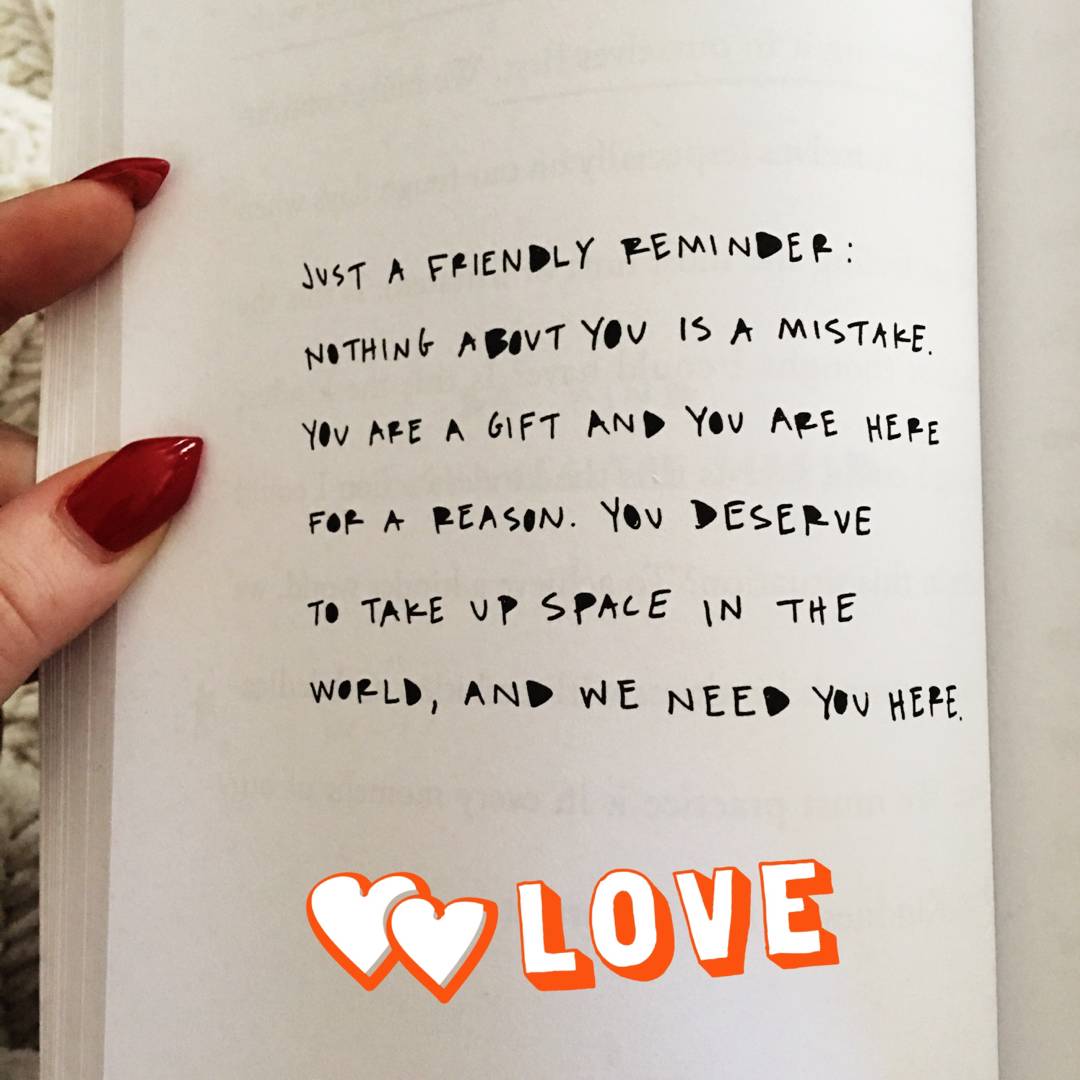 JUST A FRIENDLY REMINDER:
NOTHING ABOUT YOU IS A MISTAKE.
YOU ARE A GIFT AND YOU ARE HERE
FOR A REASON. YOU DESERVE
TO TAKE UP SPACE IN THE
WORLD, AND WE NEED YOU HERE.
LOVE